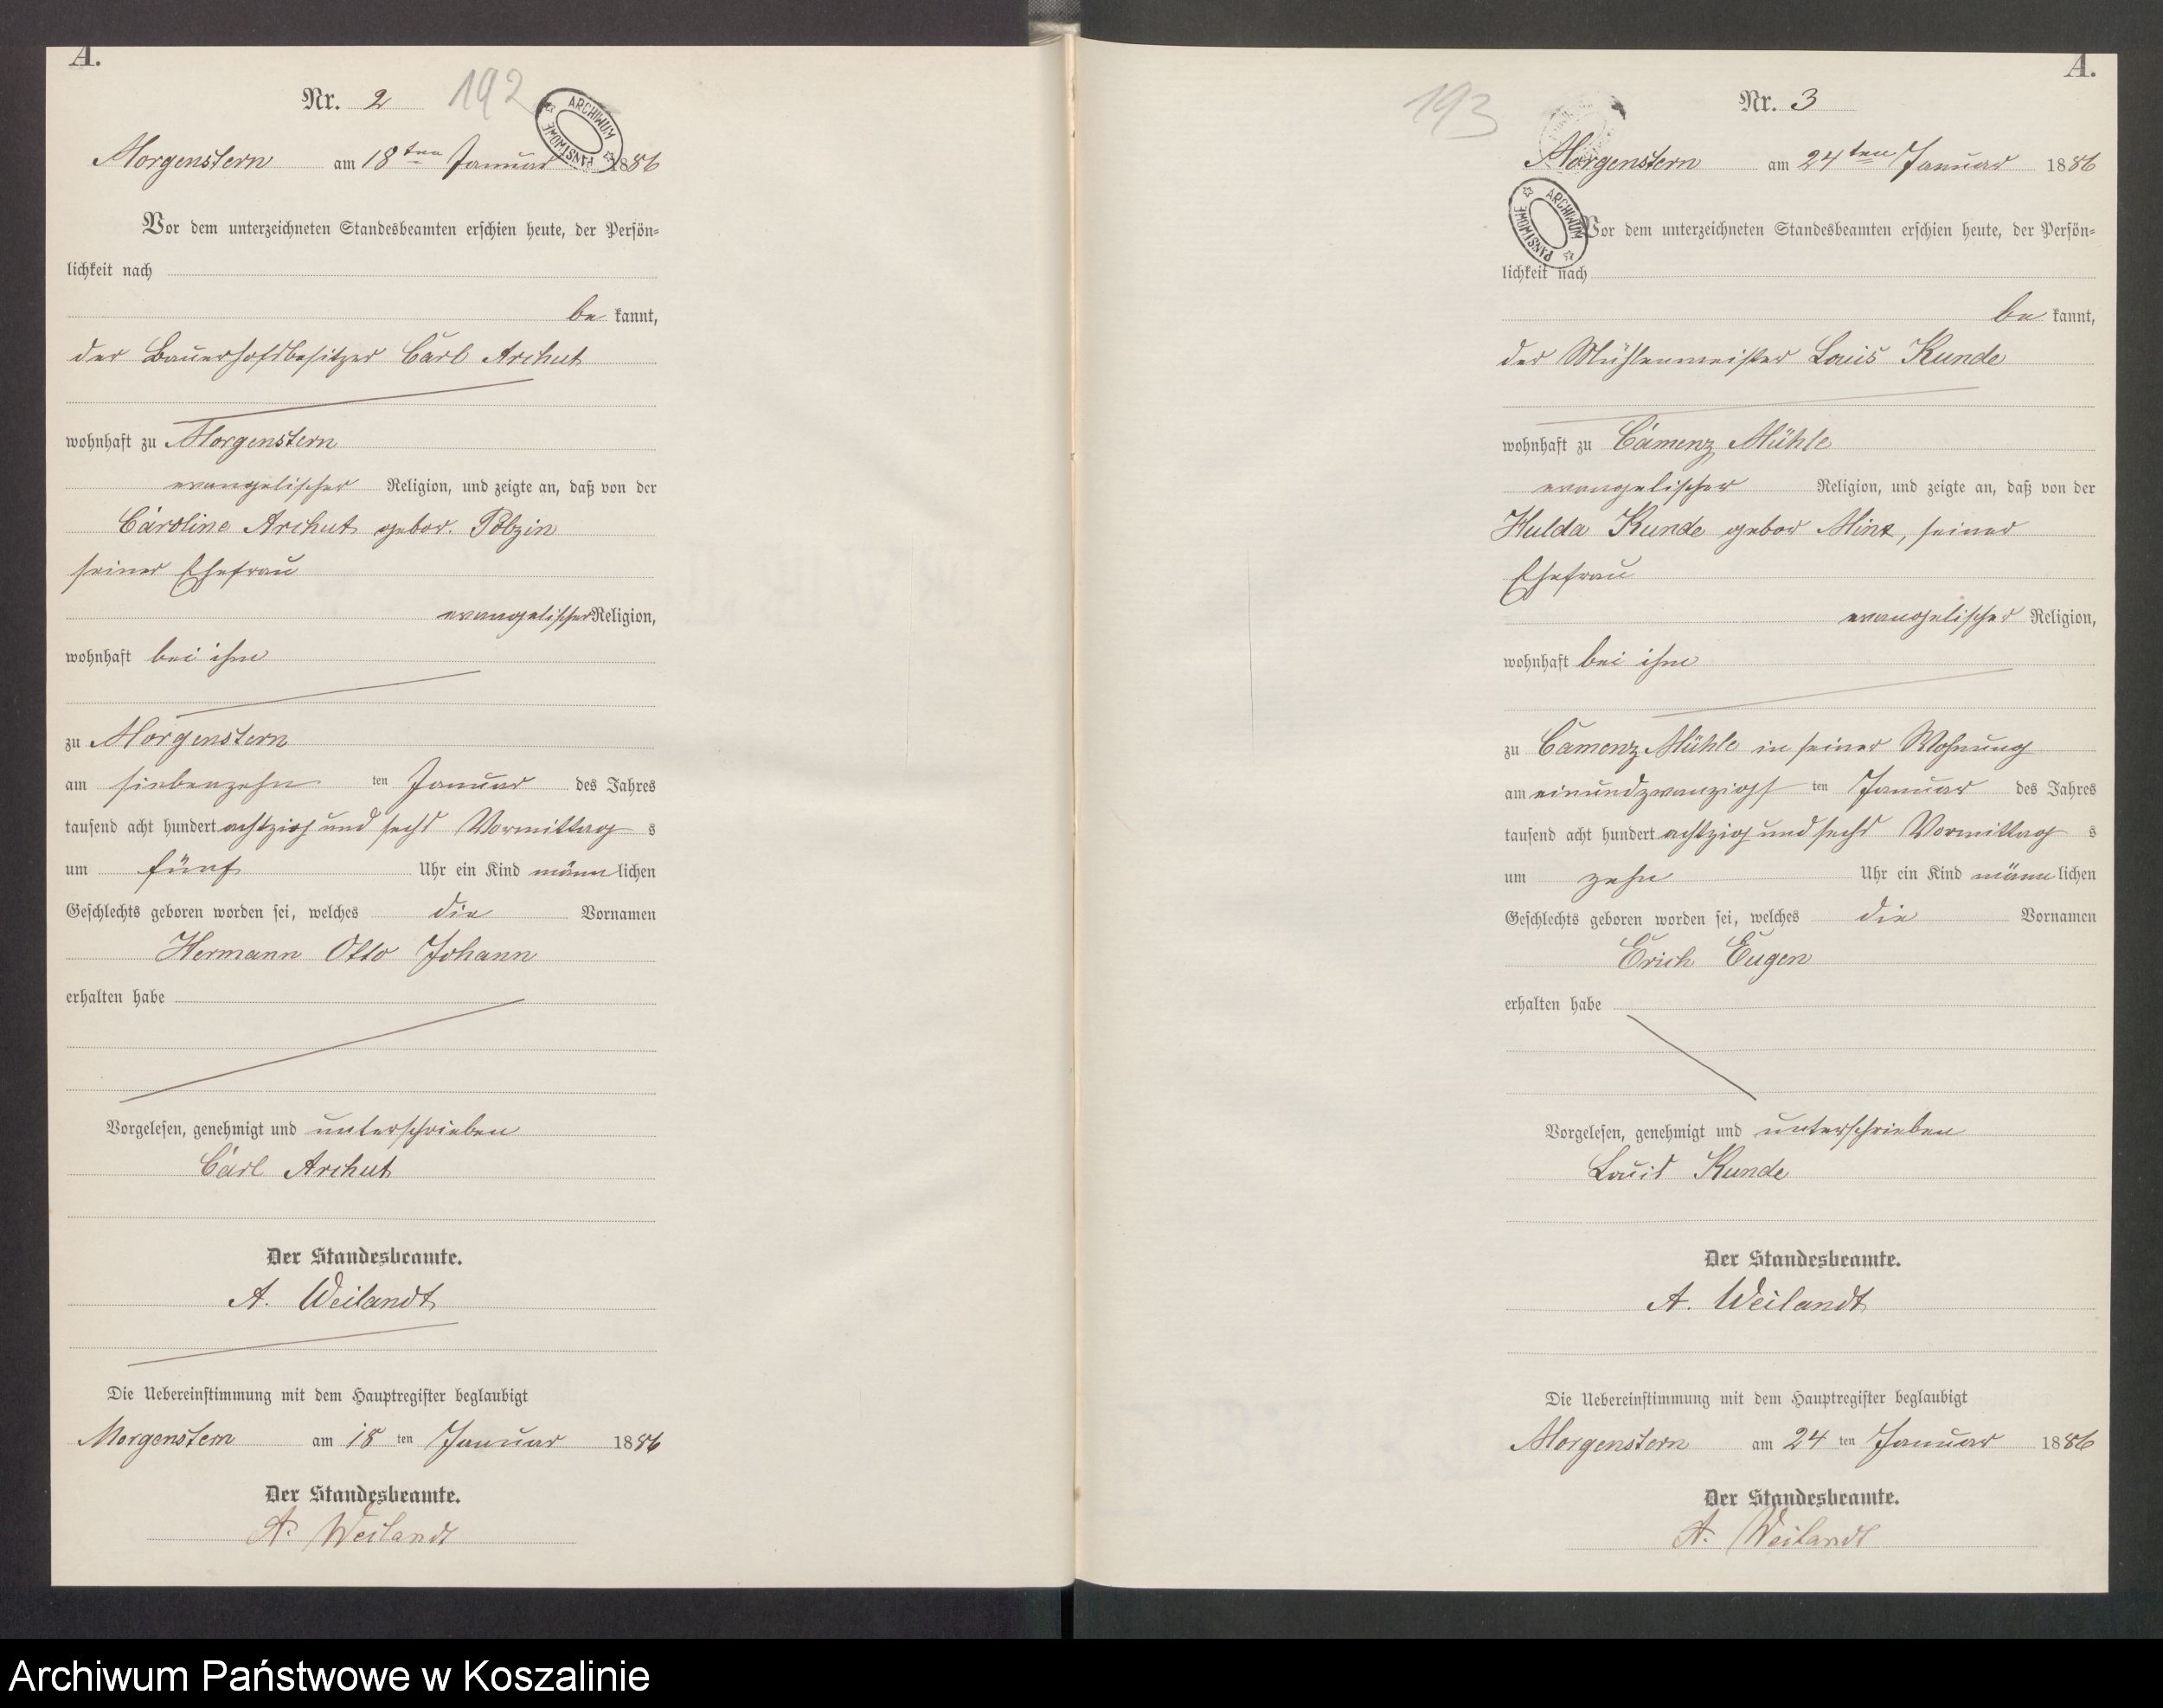 A.
Nr. 2 192
ARCHIWUM PAŃSTWOWE
Morgenstern am 18ten Januar 1886
Vor dem unterzeichneten Standesbeamten erschien heute, der Persön-
lichkeit nach
be kannt,
der Bauerhofsbesitzer Carl Archut
wohnhaft zu Morgenstern
evangelischer Religion, und zeigte an, daß von der
Caroline Archut gebor. Polzin
seiner Ehefrau
evangelischer Religion,
wohnhaft bei ihm
zu Morgenstern
am siebenzehn ten Januar des Jahres
tausend acht hundert achtzig und sechs Vormittag s
um fünf Uhr ein Kind männ lichen
Geschlechts geboren worden sei, welches die Vornamen
Hermann Otto Johann
erhalten habe
Vorgelesen, genehmigt und unterschrieben
Carl Archut
Der Standesbeamte.
A. Weilandt
Die Uebereinstimmung mit dem Hauptregister beglaubigt
Morgenstern am 18 ten Januar 1886
Der Standesbeamte.
A. Weilandt
A.
193 Nr. 3
Morgenstern am 24ten Januar 1886
ARCHIWUM PAŃSTWOWE
Vor dem unterzeichneten Standesbeamten erschien heute, der Persön-
lichkeit nach
be kannt,
der Mühlenmeister Louis Kunde
wohnhaft zu Camenz Mühle
evangelischer Religion, und zeigte an, daß von der
Hulda Kunde gebor Minx, seiner
Ehefrau
evangelischer Religion,
wohnhaft bei ihm
zu Camenz Mühle in seiner Wohnung
am einundzwanzigs ten Januar des Jahres
tausend acht hundert achtzig und sechs Vormittag s
um zehn Uhr ein Kind männ lichen
Geschlechts geboren worden sei, welches die Vornamen
Erich Eugen
erhalten habe
Vorgelesen, genehmigt und unterschrieben
Louis Kunde
Der Standesbeamte.
A. Weilandt
Die Uebereinstimmung mit dem Hauptregister beglaubigt
Morgenstern am 24 ten Januar 1886
Der Standesbeamte.
A. Weilandt
Archiwum Państwowe w Koszalinie